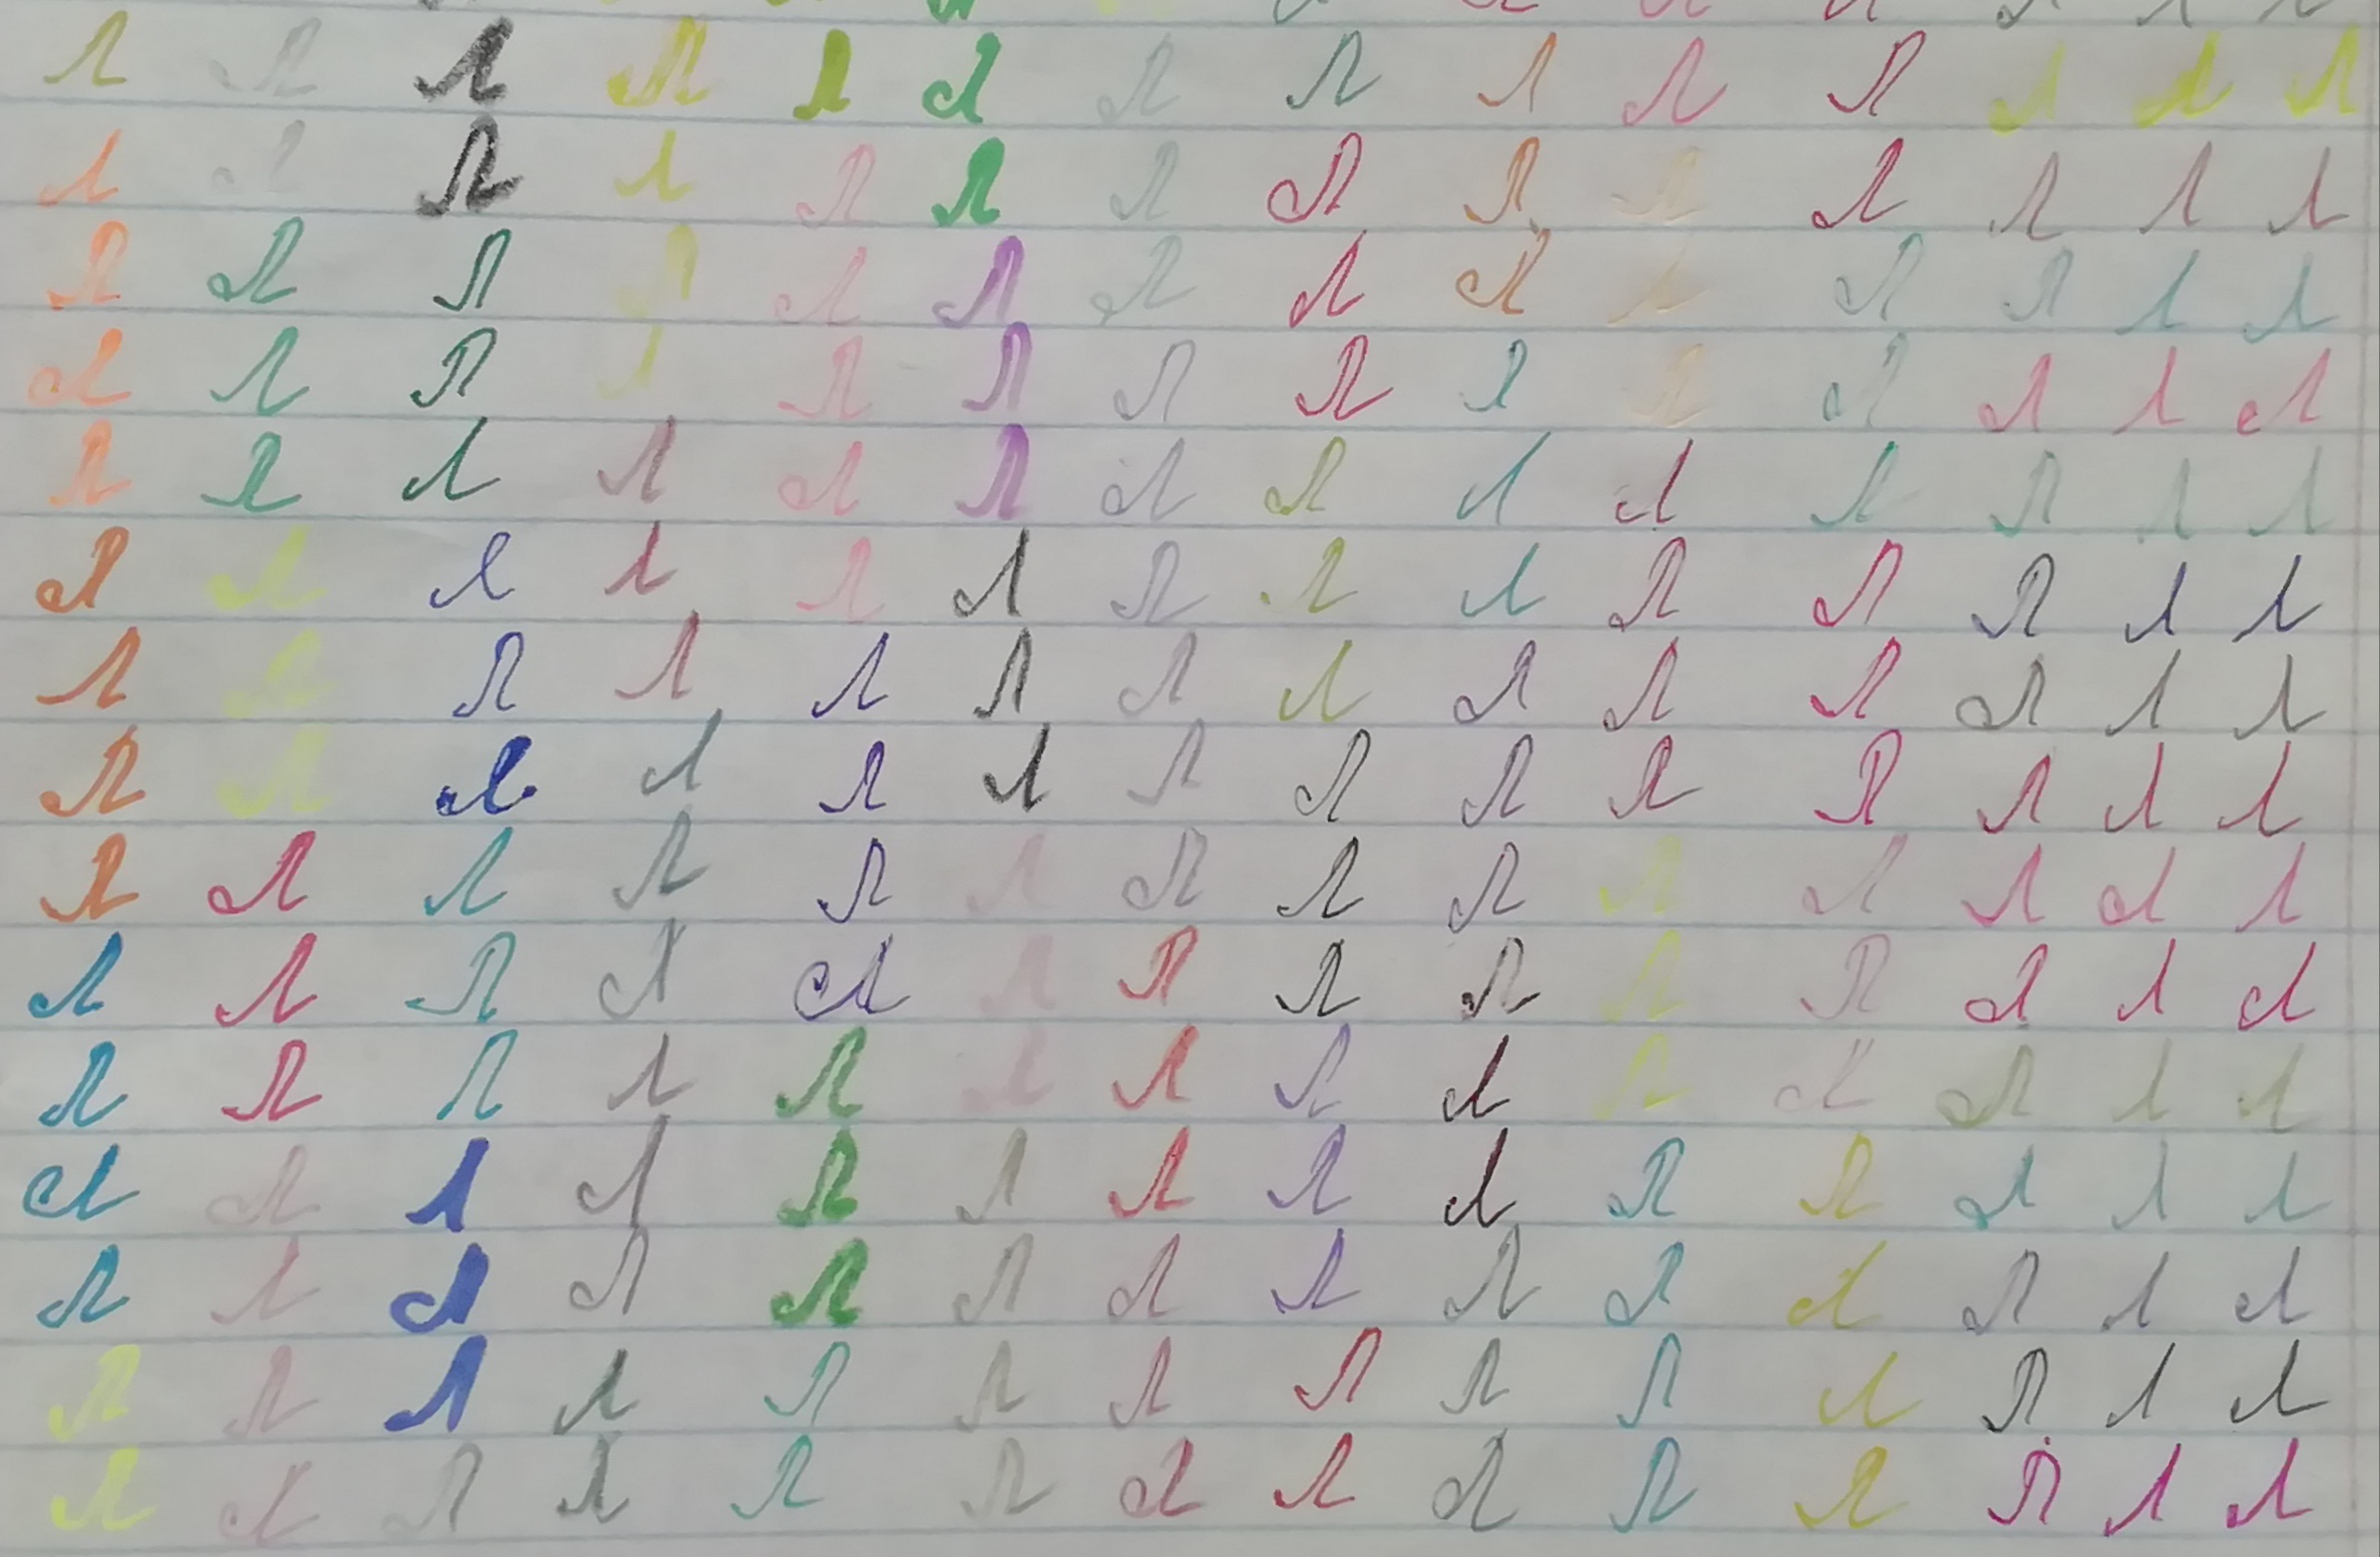 Л Л Л Л Л Л Л Л Л Л Л Л Л Л
Л Л Л Л Л Л Л Л Л Л Л Л Л Л
Л Л Л Л Л Л Л Л Л Л Л Л Л Л
Л Л Л Л Л Л Л Л Л Л Л Л Л Л
Л Л Л Л Л Л Л Л Л Л Л Л Л Л
Л Л Л Л Л Л Л Л Л Л Л Л Л Л
Л Л Л Л Л Л Л Л Л Л Л Л Л Л
Л Л Л Л Л Л Л Л Л Л Л Л Л Л
Л Л Л Л Л Л Л Л Л Л Л Л Л Л
Л Л Л Л Л Л Л Л Л Л Л Л Л Л
Л Л Л Л Л Л Л Л Л Л Л Л Л Л
Л Л Л Л Л Л Л Л Л Л Л Л Л Л
Л Л Л Л Л Л Л Л Л Л Л Л Л Л
Л Л Л Л Л Л Л Л Л Л Л Л Л Л
Л Л Л Л Л Л Л Л Л Л Л Л Л Л